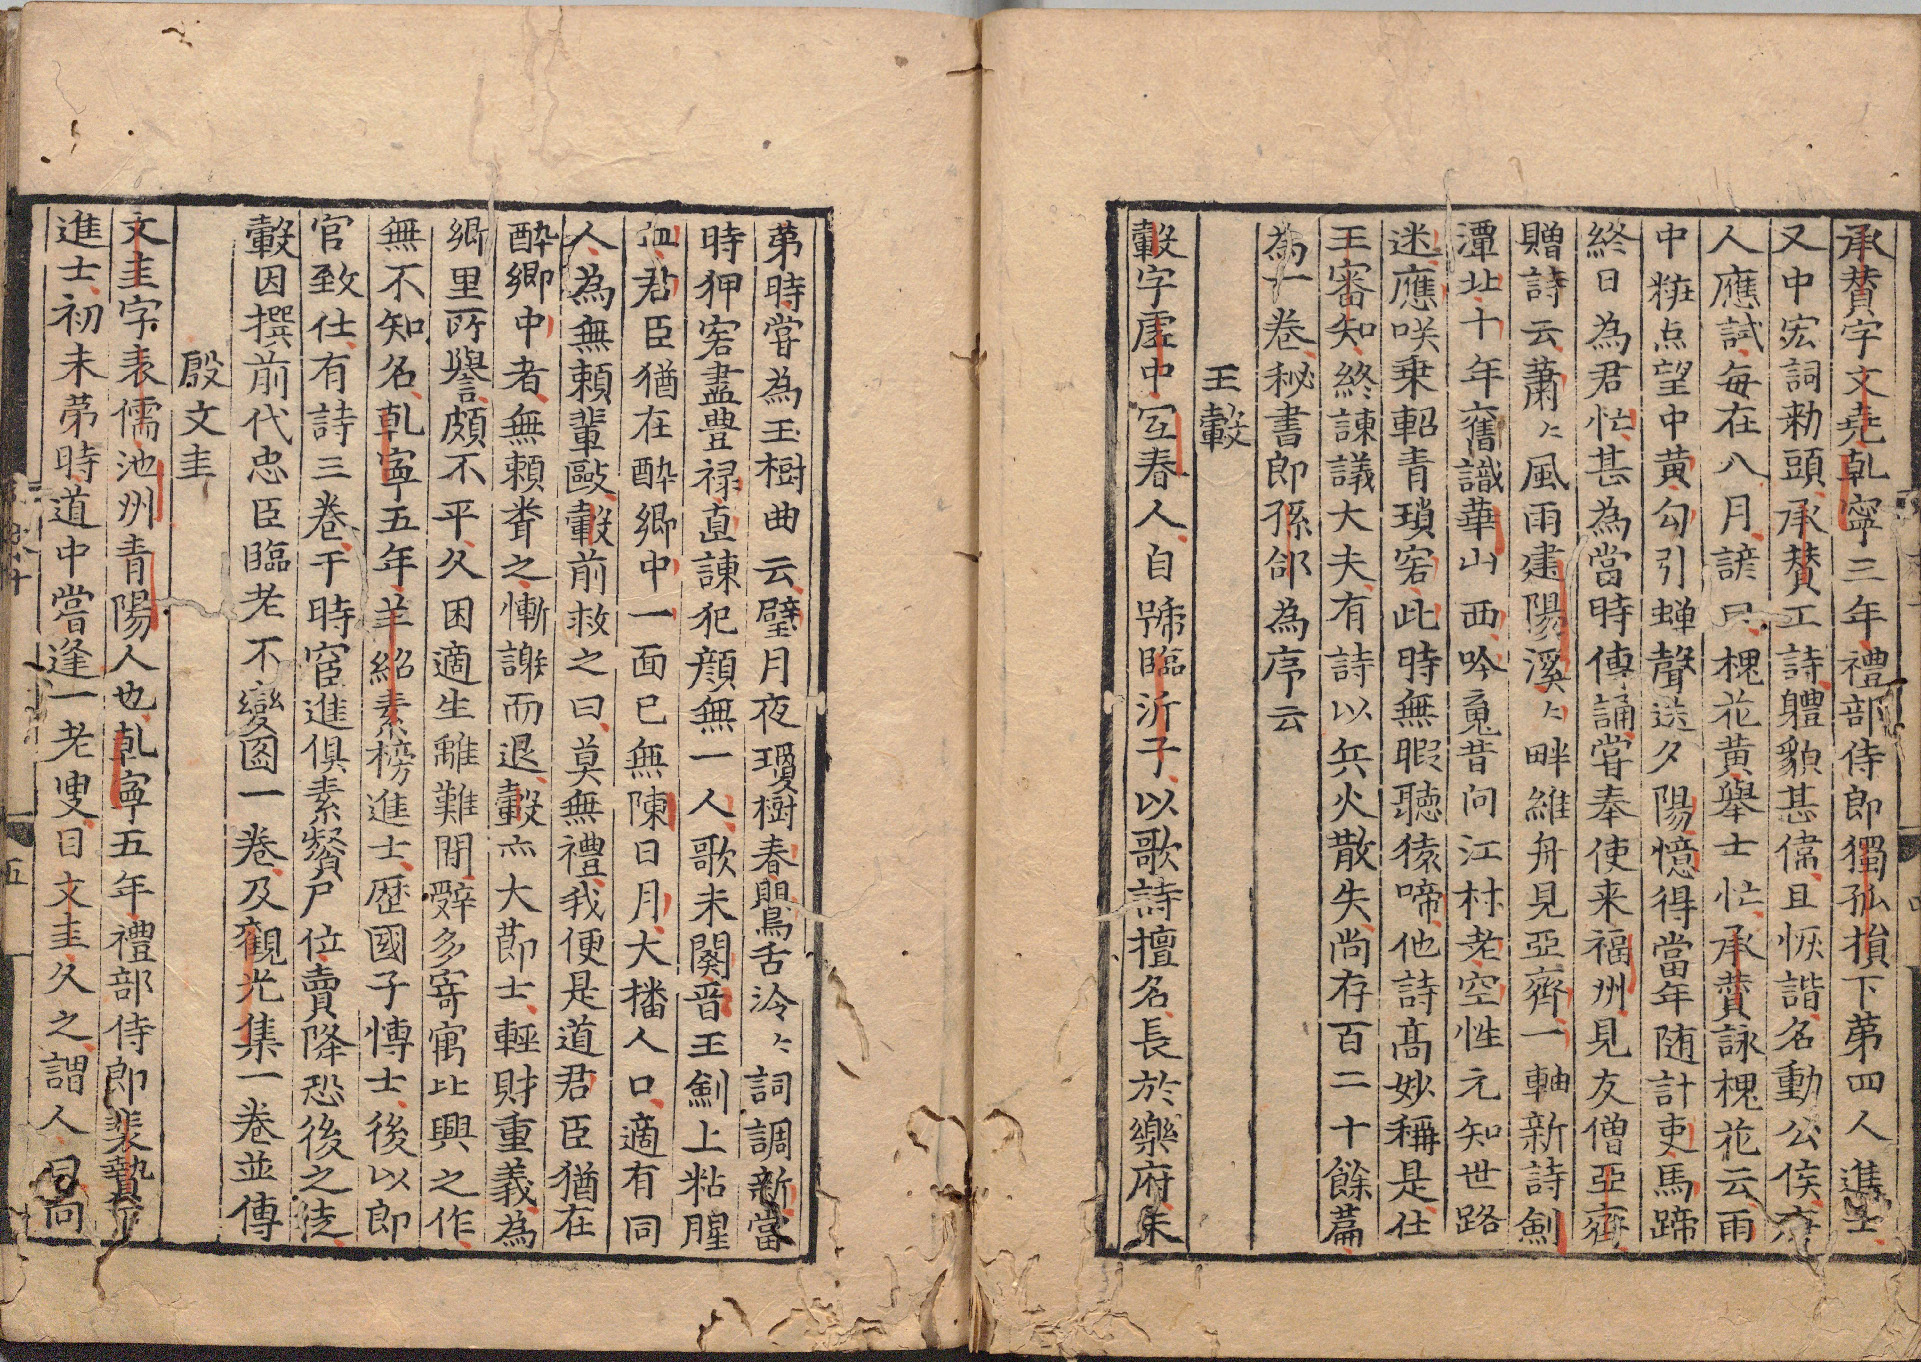 承贊字文堯乹寧三年禮部侍郎獨孤損下第四人進士
又中宏詞勅頭承賛工詩體貌甚偉且恢諧名動公侯唐
人應試每在八月諺曰槐花黄舉士忙承賛詠槐花云雨
中粧点望中黄勾引蝉聲送夕陽憶得當年随計吏馬蹄
終日為君忙甚為當時傳誦嘗奉使来福州見友僧亞齊
贈詩云蕭〻風雨建陽溪〻畔維舟見亞齊一軸新詩劍
潭北十年舊識華山西吟䰟昔问江村老空性元知世路
迷應咲乗軺青瑣客此時無暇聴猿啼他詩髙妙稱是仕
王審知終諫議大夫有詩以兵火散失尚存百二十餘篇
為一卷秘書郎孫郃為序云
王轂
轂字虚中冝春人自號臨沂子以歌詩擅名長於樂府未
第時嘗為玉樹曲云璧月夜瓊樹春鸎舌泠〻詞調新當
時狎客盡豊禄直諫犯顔無一人歌未闋晋王劍上粘腥
血君臣猶在醉鄉中一面已無陳日月大播人口適有同
人為無頼軰毆轂前救之曰莫無禮我便是道君臣猶在
醉鄉中者無頼者之慚謝而退轂亦大莭士輕財重義為
鄉里所譽頗不平久困適生離難間辤多寄寓比興之作
無不知名乹寧五年羊紹素榜進士歴國子慱士後以郎
官致仕有詩三卷于時宦進俱素餐尸位賣降恐後之徒
轂因撰前代忠臣臨老不變图一卷及觀光集一卷並傳
殷文圭
文圭字表儒池州青陽人也乹寧五年禮部侍郎裴贄榜
進士初未第時道中嘗逢一老叟目文圭久之謂人曰向
五